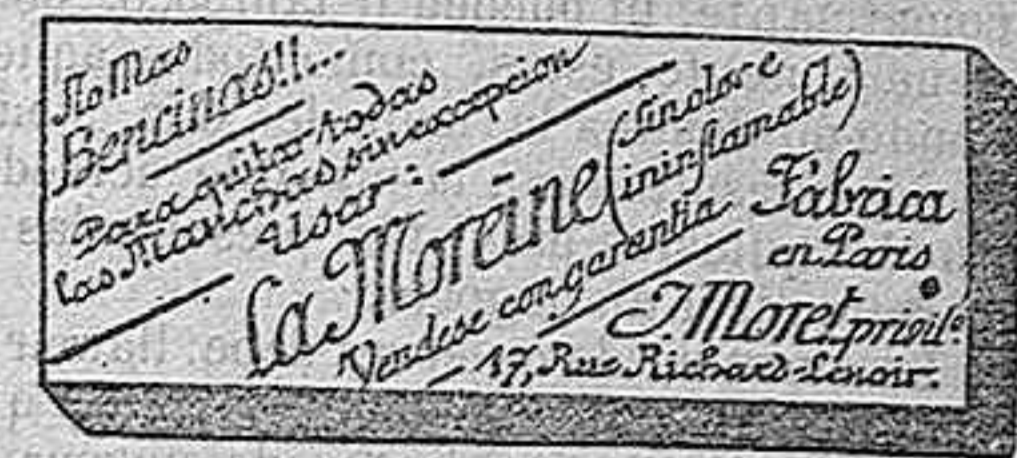 No Mas
Bencinas!!...
Para quitar todas
las Manchas sin excepcion
Usar:
La Moreine (sin olor e
ininflamable)
Vendese con garantia
Fábrica
en Paris
J. Moret privilo.
17, Rue Richard-Lenoir.